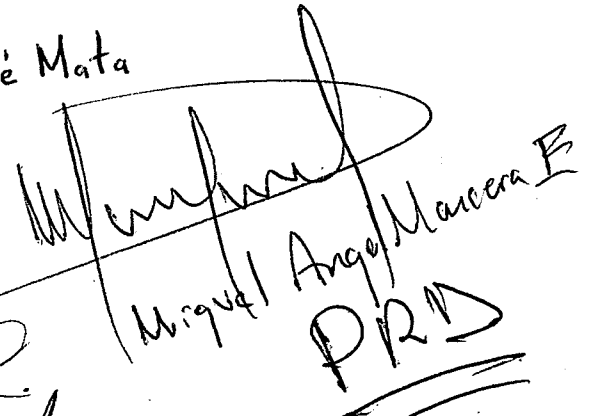 é Mata
Miguel Angel Mancera E
PRD